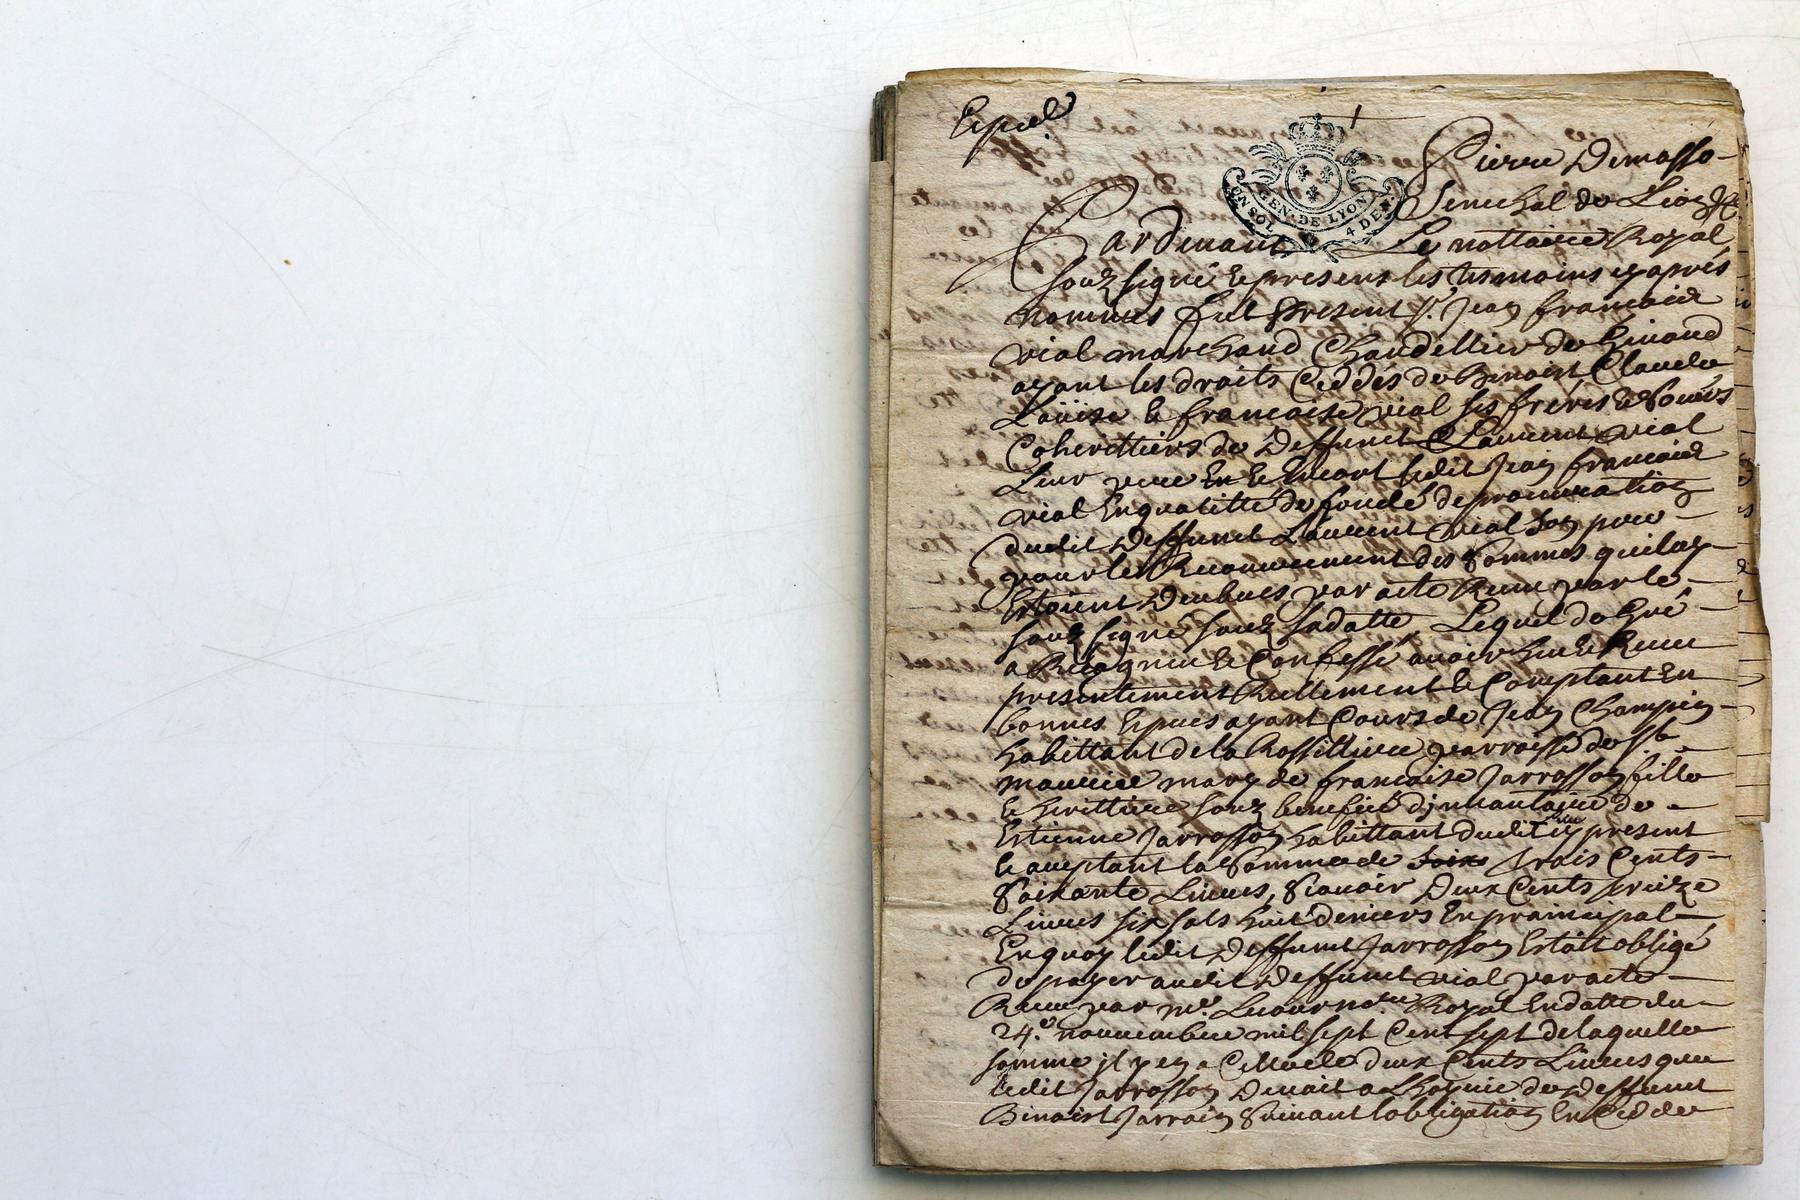 Expéd
GEN. DE LYON
UN SOL 4 DEN.
Pierre Demasso
Senechal de Lion
Pardevant Le nottaire Royal
souz signé & presens les tesmoins cy après
nommés fut present Sr. Jean francois
vial marchand Chandellier de
ayant les droits Ceddés de Benoist Claude
Loüise & francoise vial ses fréres & soeurs
Coherittiers de deffunct Laurent vial
Leur pere Et & Encort ledit Jean francois
vial En qualitté de fondé de procuration
dudit deffunct Laurent vial son pere
pour le Recouvrement des sommes qui luy
Estoient deubues par acte Receu par le
souz signé souz sa datte Lequel de Gré
a Recogneu & Confessé avoir heu & Receu
presentement Reellement & Comptant En
bonnes Especes ayant Cours de Jean Champin
habittant de la Rossilliere parroisse de St
maurice mary de francoise Jarrosson fille
& herittiere souz benefice d'jnvantaire de
Estienne Jarrosson habittant dudit icy present
& aceptant la somme de trois Cents
soixante Livres, scavoir Deux Cents treize
Livres six sols huit deniers En prainsipal
En quoy ledit deffunt Jarrosson Estoit obligé
de payer audit deffunct vial par acte
Receu par me. no.re Royal En datte du
24.e novembre mil sept Cent sept de laquelle
somme il y en a Celle de deux Cents Livres que
ledit Jarrosson Devoit a L'hoyrie de deffunct
Benoist Jarrain suivant l'obligation En